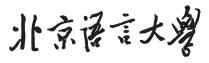 北京语言大學